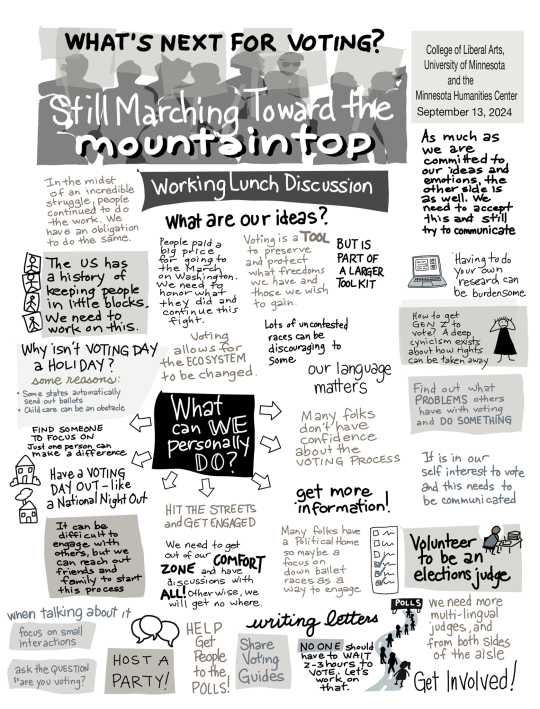 WHAT'S NEXT FOR VOTING?
Still Marching Toward the
mountaintop
College of Liberal Arts,
University of Minnesota
and the
Minnesota Humanities Center
September 13, 2024
Working Lunch Discussion
In the midst
of an incredible
struggle, people
continued to do
the work. We
have an obligation
to do the same.
What are our ideas?
As much as
we are
committed to
our ideas and
emotions, the
other side is
as well. We
need to accept
this and still
try to communicate
The US has
a history of
keeping people
in little blocks.
We need to
work on this.
People paid a
big price
for going to
the March
on Washington.
We need to
honor what
they did and
continue this
fight.
Voting is a TOOL
to preserve
and protect
what freedoms
we have and
those we wish
to gain.
BUT IS
PART OF
A LARGER
TOOLKIT
Having to do
your own
research can
be burdensome
How to get
GEN Z to
vote? A deep
cynicism exists
about how rights
can be taken away
Why isn't VOTING DAY
a HOLIDAY?
some reasons:
• Some states automatically
send out ballots
• Childcare can be an obstacle
Voting
allows for
the ECOSYSTEM
to be changed.
Lots of uncontested
races can be
discouraging to
some
our language
matters
Find out what
PROBLEMS others
have with voting
and DO SOMETHING
What
can WE
personally
DO?
FIND SOMEONE
TO FOCUS ON
Just one person can
make a difference
Have a VOTING
DAY OUT - like
a National Night Out
Many folks
don't have
confidence
about the
VOTING PROCESS
It is in our
self interest to vote
and this needs to
be communicated
get more
information!
HIT THE STREETS
and GET ENGAGED
It can be
difficult to
engage with
others, but we
can reach out
friends and
family to start
this process
We need to get
out of our COMFORT
ZONE and have
discussions with
ALL! Otherwise, we
will get no where.
Many folks have
a Political Home
so maybe a
focus on
down ballot
races as a
way to engage
Volunteer
to be an
elections judge
when talking about it
focus on small
interactions
ask the QUESTION
"are you voting?"
HOST A
PARTY!
HELP
Get
People
to the
POLLS!
writing letters
Share
Voting
Guides
NO ONE should
have to WAIT
2-3 hours to
VOTE. Let's
work on
that.
POLLS
We need more
multi-lingual
judges, and
from both sides
of the aisle
Get Involved!